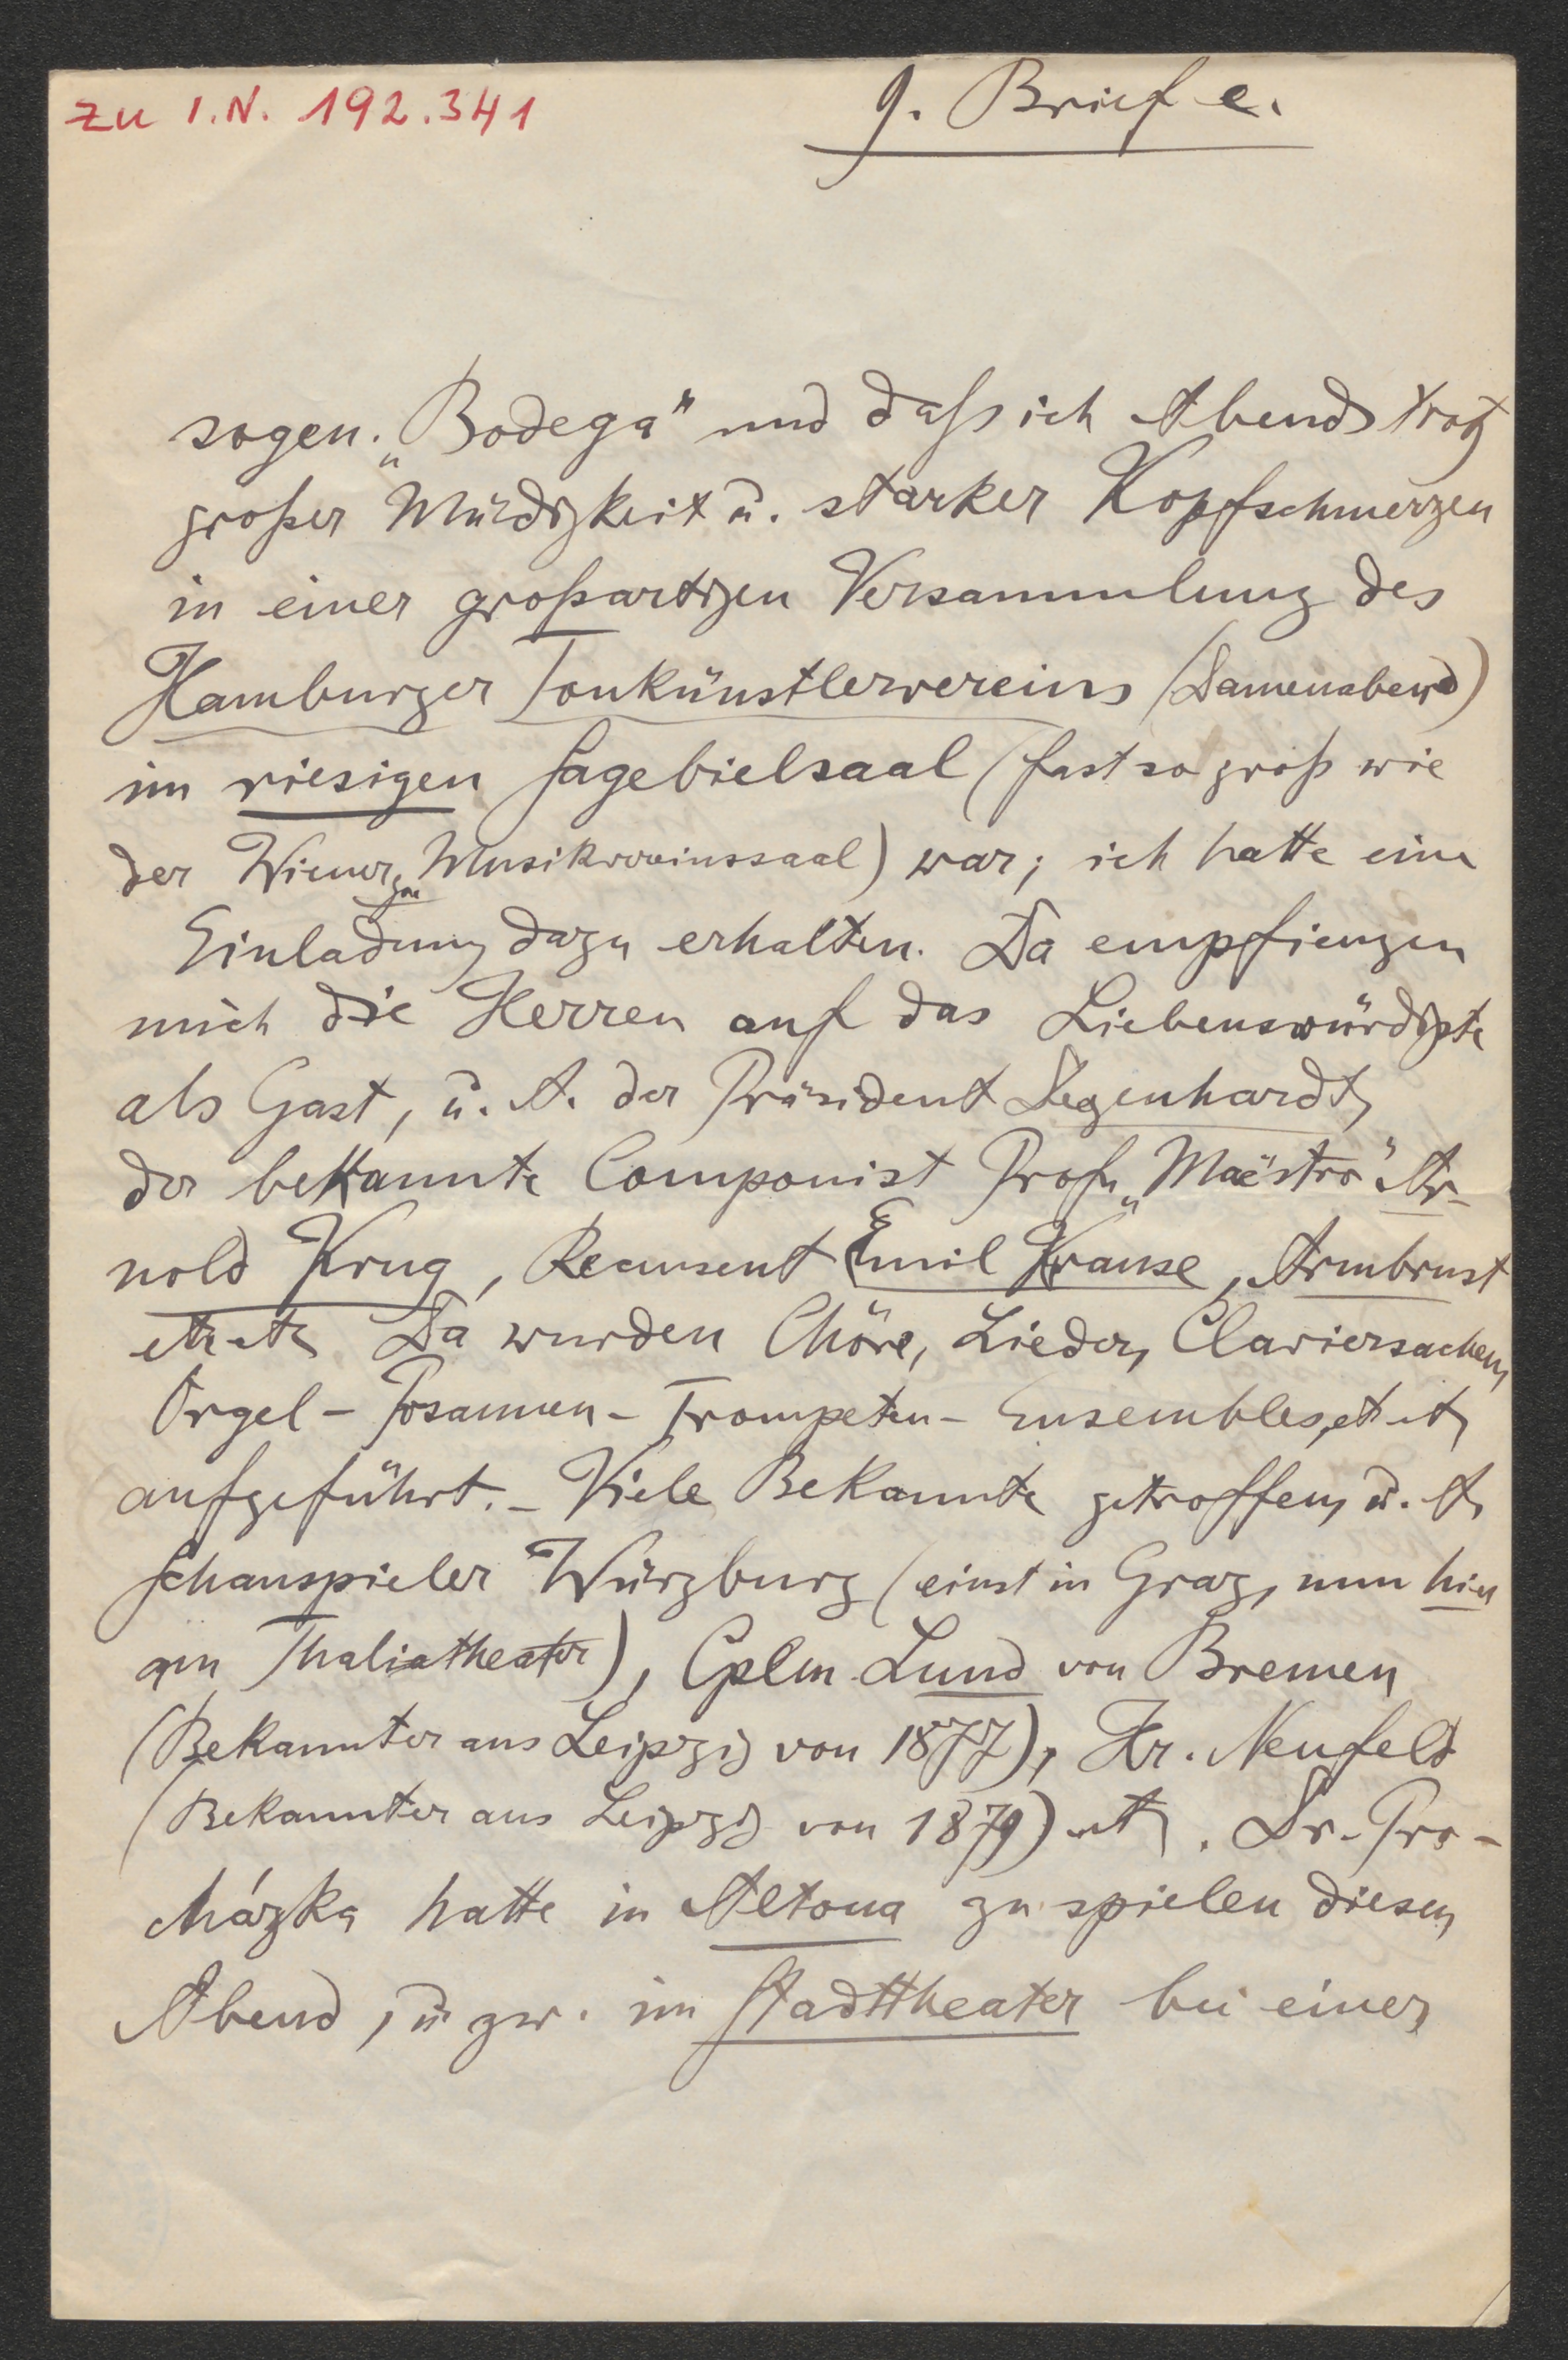 zu I.N. 192.341
9. Brief e.
sogen. „Bodega" und daß ich Abends trotz
großer Müdigkeit u. starker Kopfschmerzen
in einer großartigen Versammlung des
Hamburger Tonkünstlervereins (Damenabend)
im riesigen Sagebielsaal (fast so groß wie
der Wiener Musikvereinssaal) war; ich hatte eine
Einladung dazu erhalten. Da empfiengen
mich die Herren auf das Liebenswürdigste
als Gast, u. A. der Präsident Degenhardt,
der bekannte Componist Prof. „Maëstro" Ar-
nold Krug, Recensent Emil Krause, Armbrust
etc etc. Da wurden Chöre, Lieder, Claviersachen,
Orgel- Posaunen- Trompeten- Ensembles, etc etc
aufgeführt. – Viele Bekannte getroffen, u. A.
Schauspieler Würzburg (einst in Graz, nun hier
am Thaliatheater), Cplm. Lund von Bremen
(Bekannter aus Leipzig von 1877), Hr. Neufeld
(Bekannter aus Leipzig von 1879) etc. Dr. Pro-
cházka hatte in Altona zu spielen diesen
Abend, u. zw. im Stadttheater bei einer